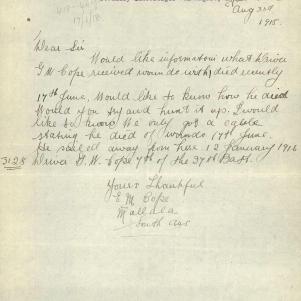 Aug 31st
1918.
Dear Sir
Would like information what Driver
G W Cope received wounds with, died recently
17th June, Would like to know how he died
Would you try and hunt it up. I would
like to know. We only got a cable
stating he died of wounds 17th June.
He sailed away from here 12 January 1916
3128 Driver G. W. Cope 7th of the 37th Batt.
Yours Thankful
E M Cope
Mallala
South Aus